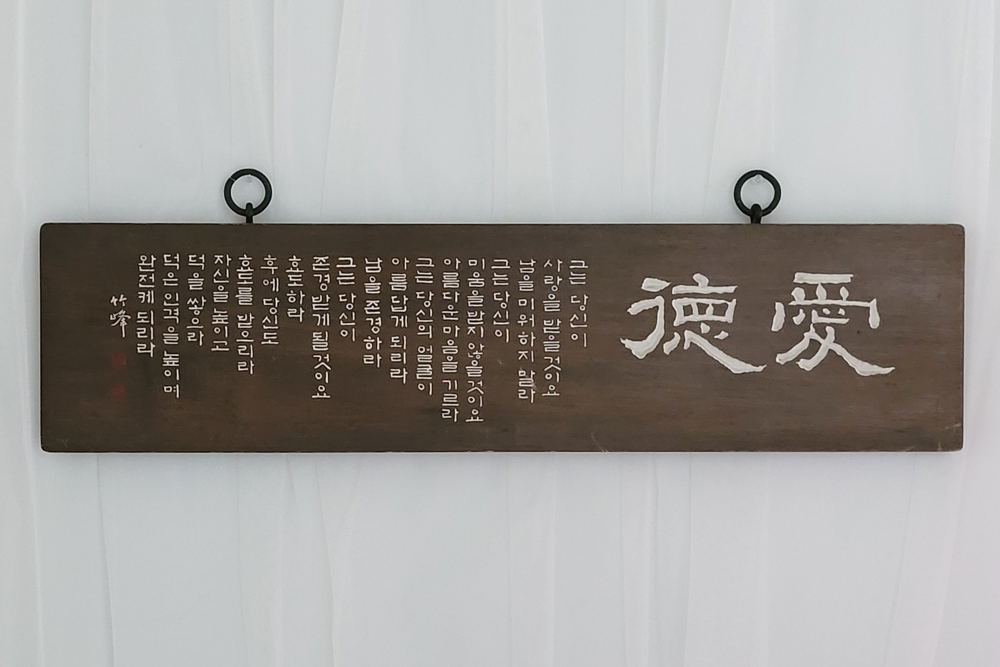 愛德
그는 당신이
사랑을 받을것이요
남을 미워하지 말라
그는 당신이
미움을 받지 않을것이요
아름다운 마음을 기르라
그는 당신의 얼굴이
아름답게 되리라
남을 존경하라
그는 당신이
존경 받게 될것이요
효도하라
후에 당신도
효도를 받으리라
자신을 높이고
덕을 쌓으라
덕은 인격을 높이며
완전케 되리라
竹峰